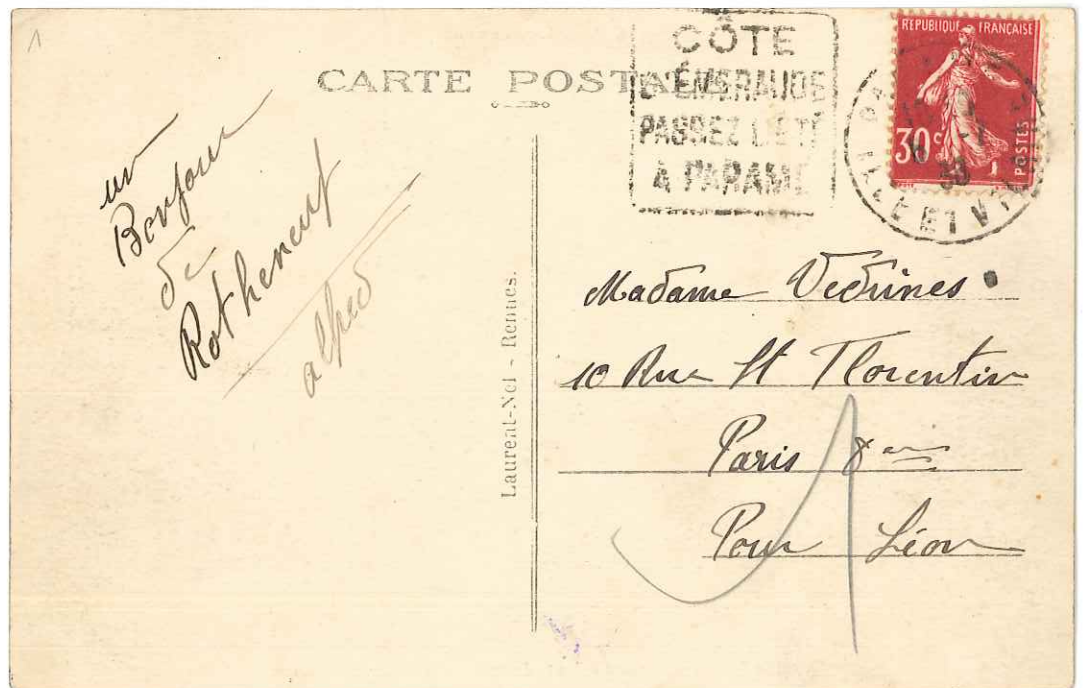 1
CARTE POSTALE
CÔTE
D'ÉMERAUDE
PASSEZ L'ÉTÉ
À PARAMÉ
REPUBLIQUE FRANÇAISE
30c
POSTES
ILLE ET VILAINE
un
Bonjour
de
Rotheneuf
alfred
Laurent-Nel - Rennes.
Madame Vedrines
10 Rue St Florentin
Paris 8eme
Pour Léon